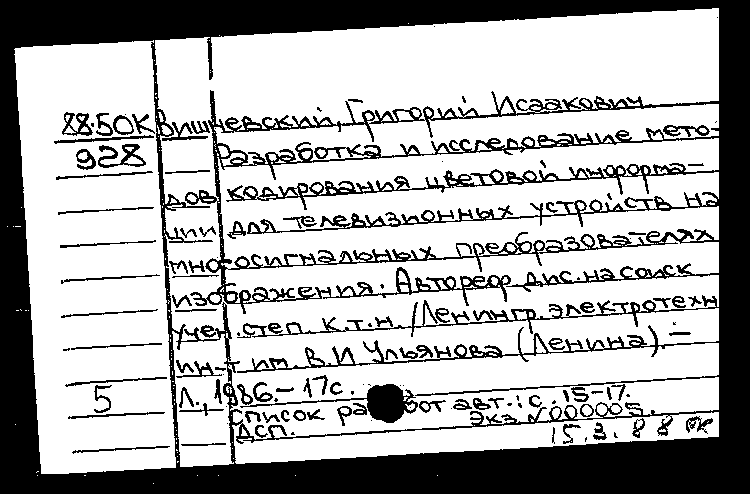 88-50К Вишневский, Григорий Исаакович
928 Разработка и исследование мето-
дов кодирования цветовой информа-
ции для телевизионных устройств на
многосигнальных преобразователях
изображения: Автореф дис. на соиск
учен. степ. к.т.н. /Ленингр. электротехн
ин-т им. В.И Ульянова (Ленина). –
5 Л., 1986. – 17с.
список работ авт.: с. 15-17.
Экз. №000005.
ДСП.
15.3.88